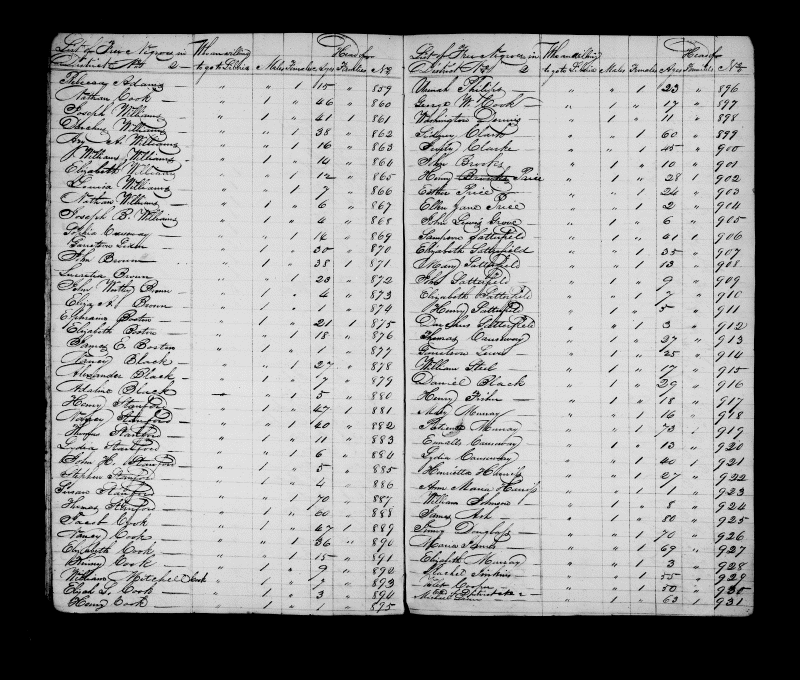 List of Free Negroes in District No 2 — Who are willing to go to Liberia Males Females Ages Head of Families No
Rebecca Adams — " " 1 15 " 859
Nathan Cook — " 1 " 46 " 860
Joseph Williams " 1 " 41 1 861
Williams " " 1 38 " 862
Ary A. Williams " " 1 16 " 863
J. Williams " 1 " 14 " 864
Elizabeth Williams " " 1 12 " 865
Louisa Williams " " 1 7 " 866
Nathan Williams " 1 " 6 " 867
Joseph B. Williams " 1 " 4 " 868
Causway — " " 1 14 " 869
" 1 " 30 " 870
Brown — " 1 " 38 1 871
Lucretia Brown " " 1 23 " 872
John Brown " 1 " 4 " 873
Eliza A. Brown " " 1 1 " 874
Ephraim Boston — " 1 " 21 1 875
Elizabeth Boston — " " 1 18 " 876
James E. Boston " 1 " 1 " 877
Nancy Black " " 1 27 " 878
Alexander Black — " 1 " 7 " 879
Adaline Black " 1 5 " 880
Henry Stanford — " 1 " 47 1 881
Stanford — " " 1 40 " 882
Thomas Stanford — " 1 " 11 " 883
Lydia Stanford — " " 1 6 " 884
John H. Stanford — " 1 " 5 " 885
Stephen Stanford " 1 " 4 " 886
Susan Stanford — " " 1 70 " 887
Thomas Stanford — " 1 " 60 " 888
Jacob Cook " 1 " 47 1 889
Nancy Cook — " " 1 36 " 890
Elizabeth Cook — " " 1 15 " 891
Cook — " 9 " 892
William Mitchell Cook " 1 " 7 " 893
Elijah S. Cook — " 1 " 3 " 894
Henry Cook — " 1 " 1 " 895
List of Free Negroes in District No 2 Who are willing to go to Liberia Males Females Ages Head of Families No
Philips " " 1 23 " 896
George W. Cook — " 1 " 17 " 897
Washington Dennis " 1 " 11 " 898
Sidney Clark — 60 " 899
Clarke — " 45 " 900
John Brooks " 1 " 10 " 901
Henry Price " 1 " 28 1 902
Esther Price — " " 1 24 " 903
Ellen Jane Price " " 1 2 " 904
John Lewis " 1 " 6 " 905
Sampson Satterfield " 1 " 41 1 906
Elizabeth Satterfield " " 1 35 " 907
Mary Satterfield " " 1 13 " 908
John Satterfield " 1 " 9 " 909
Elizabeth Satterfield " " 1 7 " 910
Henry Satterfield " 1 " 5 " 911
Satterfield " 1 " 3 " 912
Thomas Causway " 1 " 27 " 913
Lewis — " 1 " 25 " 914
William " 1 " 17 " 915
Daniel Black " 1 " 29 " 916
Henry " 1 " 18 " 917
Murray — " 16 " 918
Patience Murray " " 1 73 " 919
Causway " 13 " 920
Lydia Causway " " 1 40 1 921
Henrietta Harriss " " 1 27 " 922
Ann Maria Harriss " " 1 1 " 923
William Johnson " 1 " 8 " 924
James Ash " 1 " 80 " 925
Jenny Douglass — " " 1 70 " 926
Maria " " 1 69 " 927
Elizabeth Murray " " 1 3 " 928
Rachel Jenkins " " 1 55 " 929
Cooper " 1 " 50 " 930
" 1 " 63 1 931